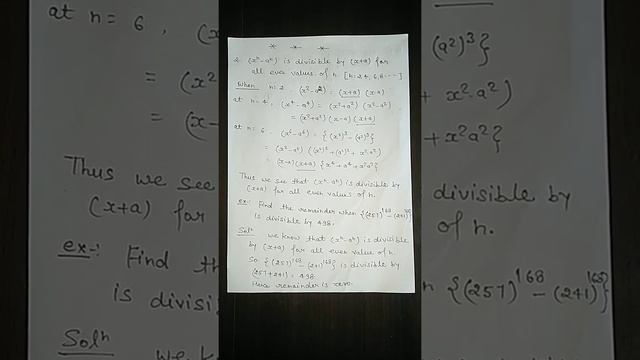 * * *
2. (xⁿ-aⁿ) is divisible by (x+a) for
all even values of n. [n=2,4,6,8----]
When n=2, (x²-a²) = (x+a) (x-a)
at n=4, (x⁴-a⁴) = (x²+a²) (x²-a²)
= (x²+a²) (x-a) (x+a)
at n=6 (x⁶-a⁶) = {(x²)³-(a²)³}
= (x²-a²) {(x²)²+(a²)²+x²·a²}
= (x-a) (x+a) {x⁴+a⁴+x²a²}
Thus we see that (xⁿ-aⁿ) is divisible by
(x+a) for all even value of n.
ex:- Find the remainder when {(257)¹⁶⁸-(241)¹⁶⁸}
is divisible by 498.
Solⁿ we know that (xⁿ-aⁿ) is divisible
by (x+a) for all even value of n.
So {(257)¹⁶⁸-(241)¹⁶⁸} is divisible by
(257+241) = 498
Here remainder is zero.